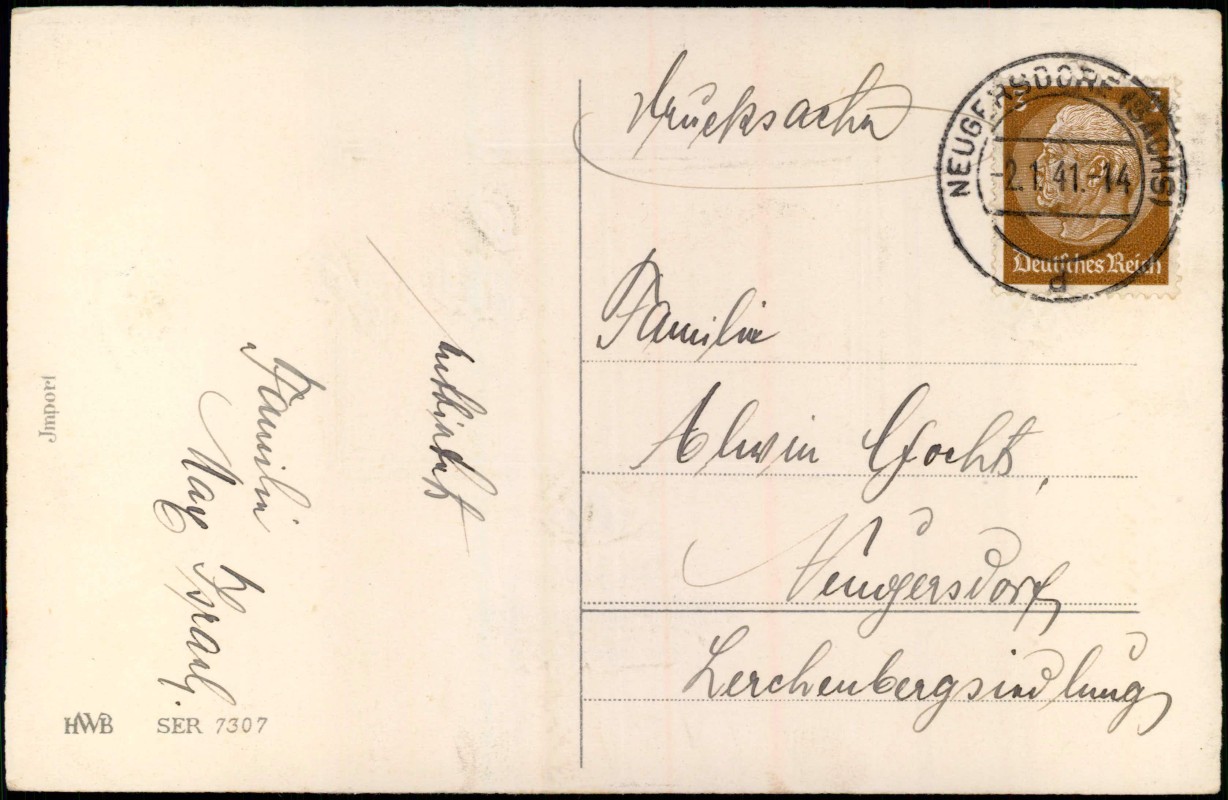 Drucksache
NEUGERSDORF (SACHS)
2.1.41.-14
d
3
Deutsches Reich
Familie
Alwin Gocht,
Neugersdorf
Lerchenbergsiedlung
Familie
Max Israel.
Import
HWB SER 7307